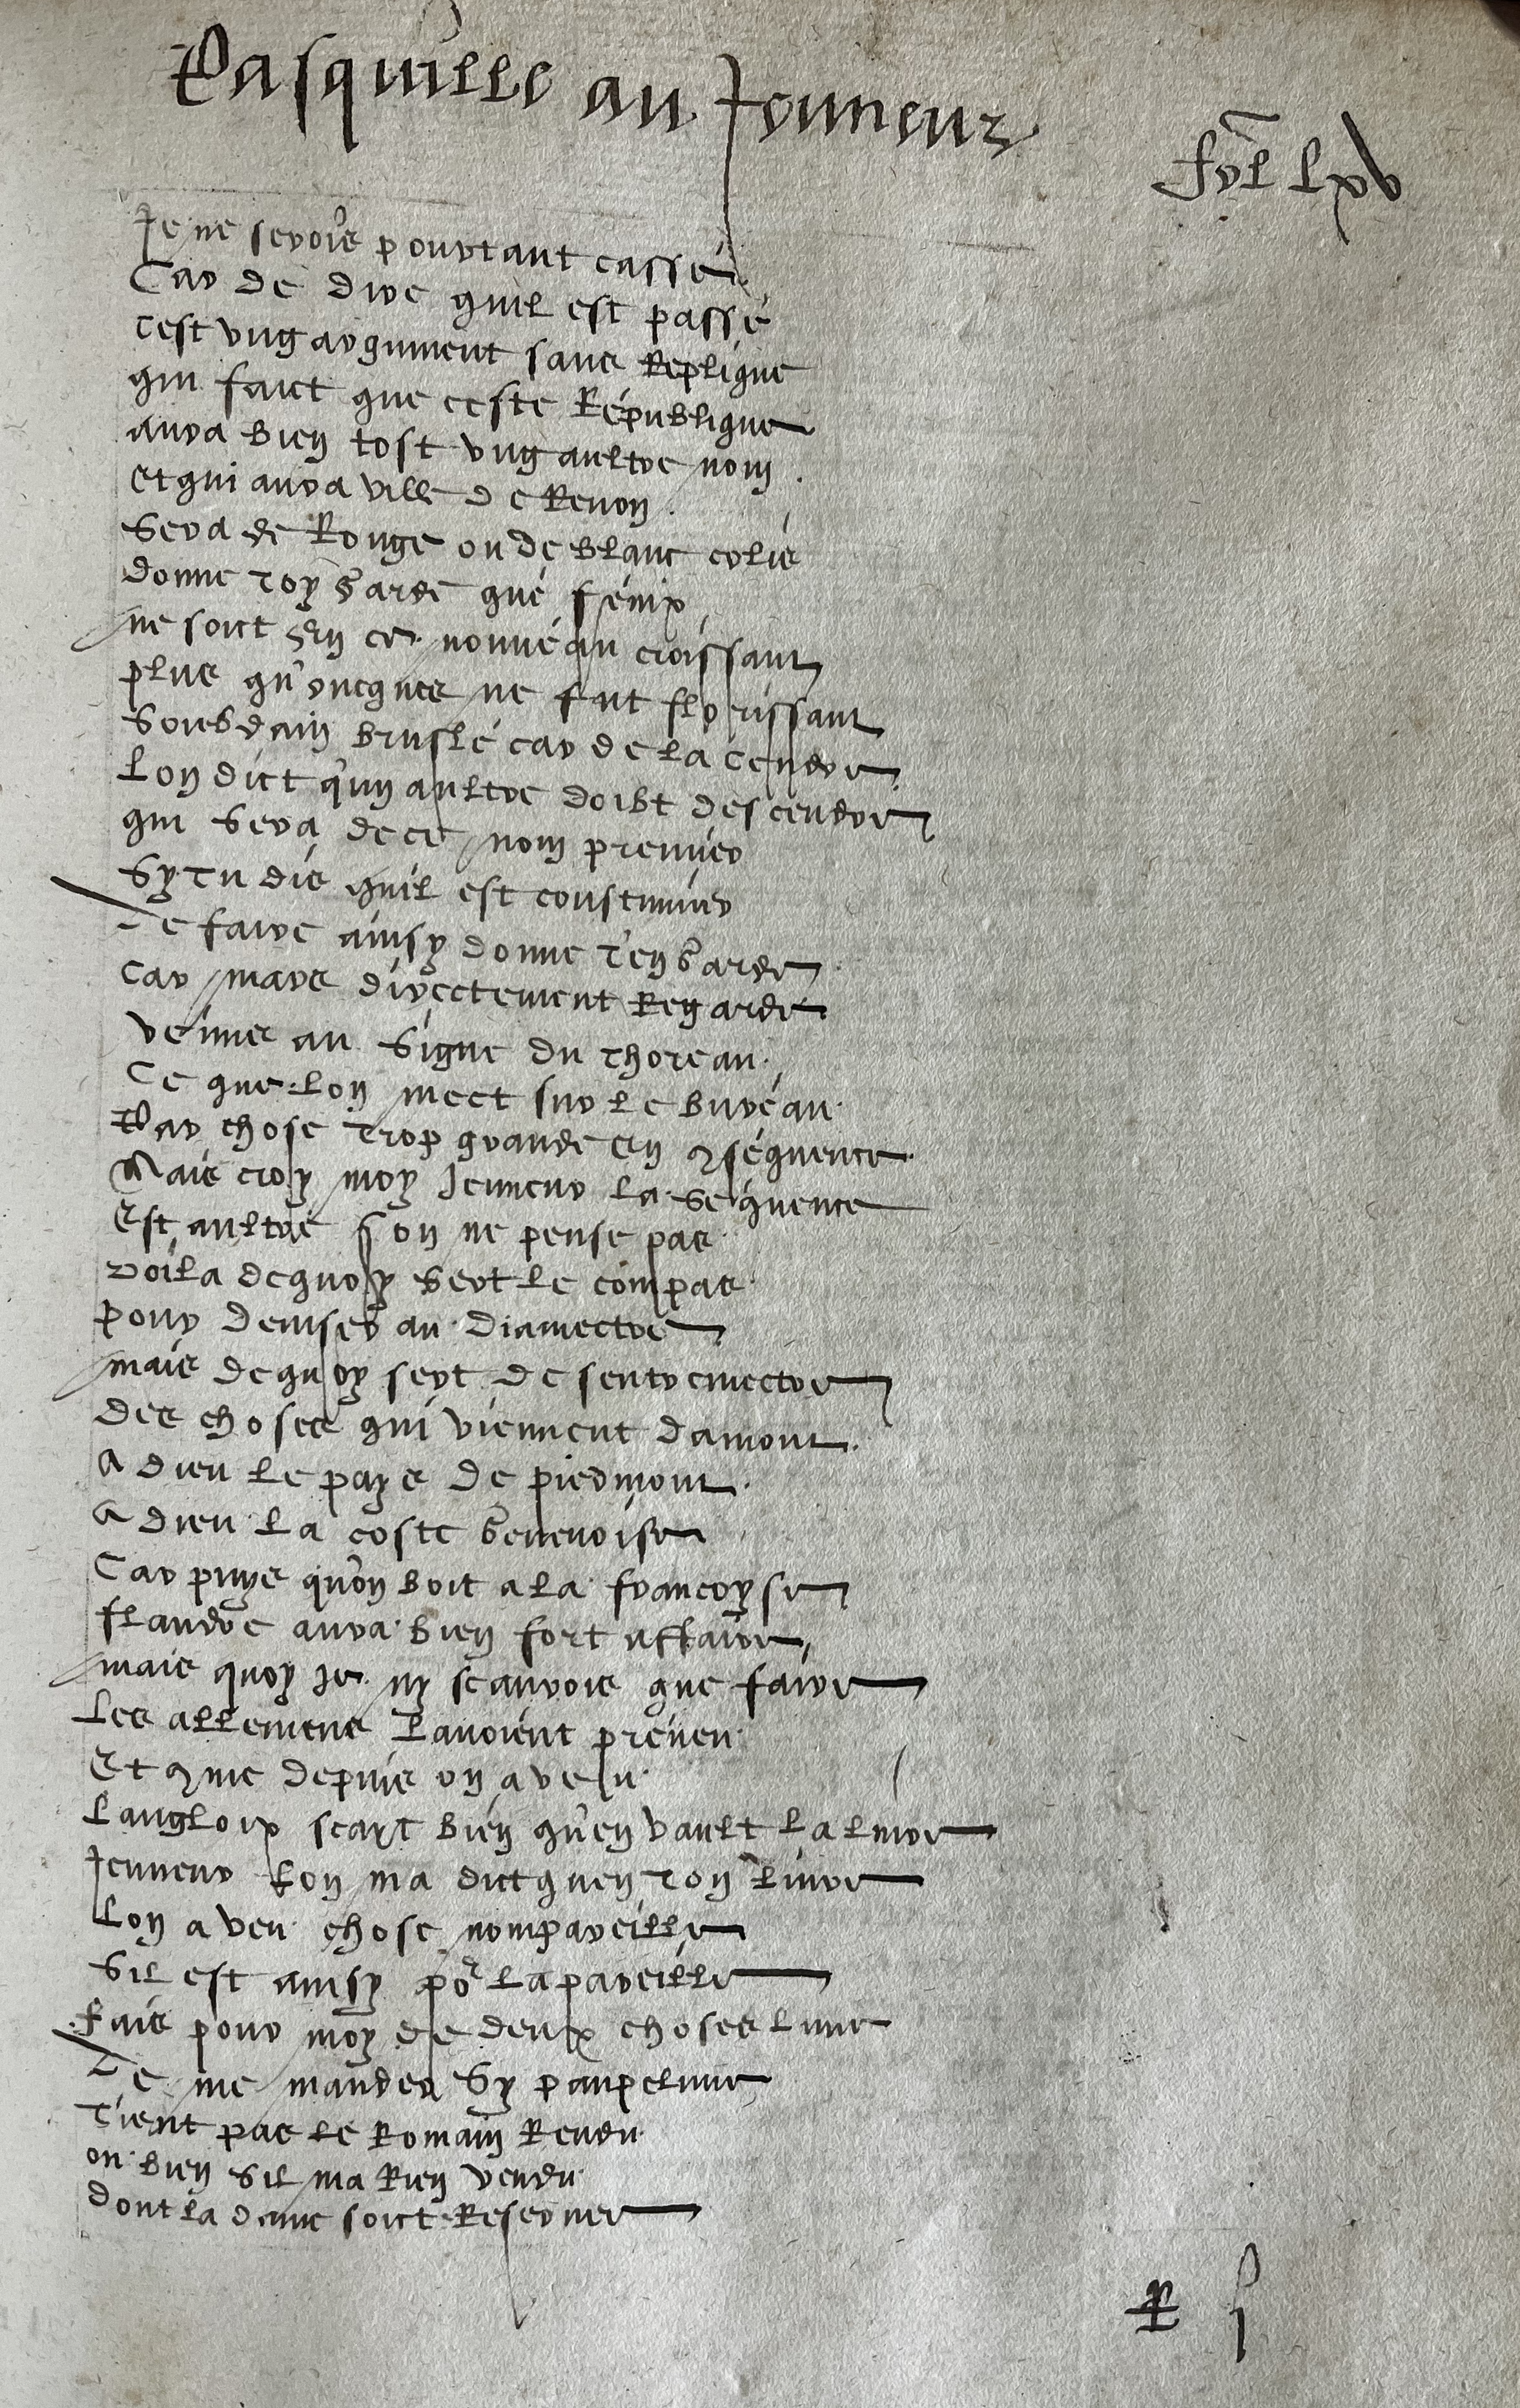 Pasquille au Jeuneur
fol lxv
Je ne serois pourtant cassé
Car de dire quil est passé
Cest ung argument sans Replique
qui faict que ceste République
aura bien tost ung aultre nom
et qui aura ville de Renon
Sera de Rouge ou de blanc
donne toy garde que fenix
ne soict en ce nouueau croissant
plus qu'oncques ne fut florissant
Soubdain bruslé car de la cendre
Lon dict qu'un aultre doibt descendre
qui Sera de ce nom premier
Sy tu dis quil est coustumier
De faire ainsy donne t'en garde
Car mars directement Regarde
venus au Signe du thoreau
Ce que lon meet sur le bureau
Par chose trop grande en 9séquence
Mais croy moy Jeuneur la Séquence
Est aultre son ne pense pas
Voila dequoy Sert le compas
pour deuiser au diamectre
mais dequoy sert de sentremectre
des choses qui viennent damont
A dieu le pays de piedmont
A dieu la coste Genevoise
Car puys qu'on boit a la francoyse
flandre aura bien fort affaire
mais quoy Je ny scaurois que faire
Les allemens Lauoient preueu
Et 9me depuis on a veu
Langloix scayt bien qu'en vault la liure
Jeuneur Lon ma dict quen ton Liure
Lon a veu chose nompareille
Sil est ainsy por Lapareille
Fais pour moy de deux choses lune
De me mander Sy
Tient pas le Romain Rendu
ou bien Sil ma Rien vendu
dont la dame soict Reseruee